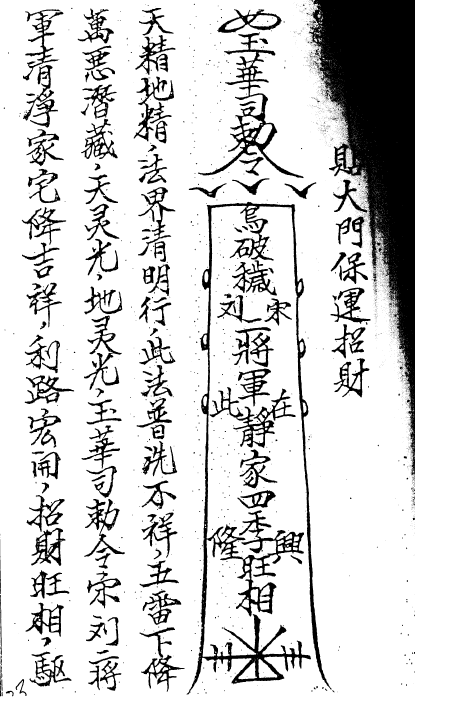 貼大門保運招財
玉華司敕令
烏破穢
宋刘
二將軍
在此
靜家四季
興隆
旺相
天精地精，法界清明行，此法普洗不祥，五雷下降
萬惡潛藏，天灵光，地灵光，玉華司勅令宋刘二蔣
軍清淨家宅降吉祥，利路宏開，招財旺相，驅